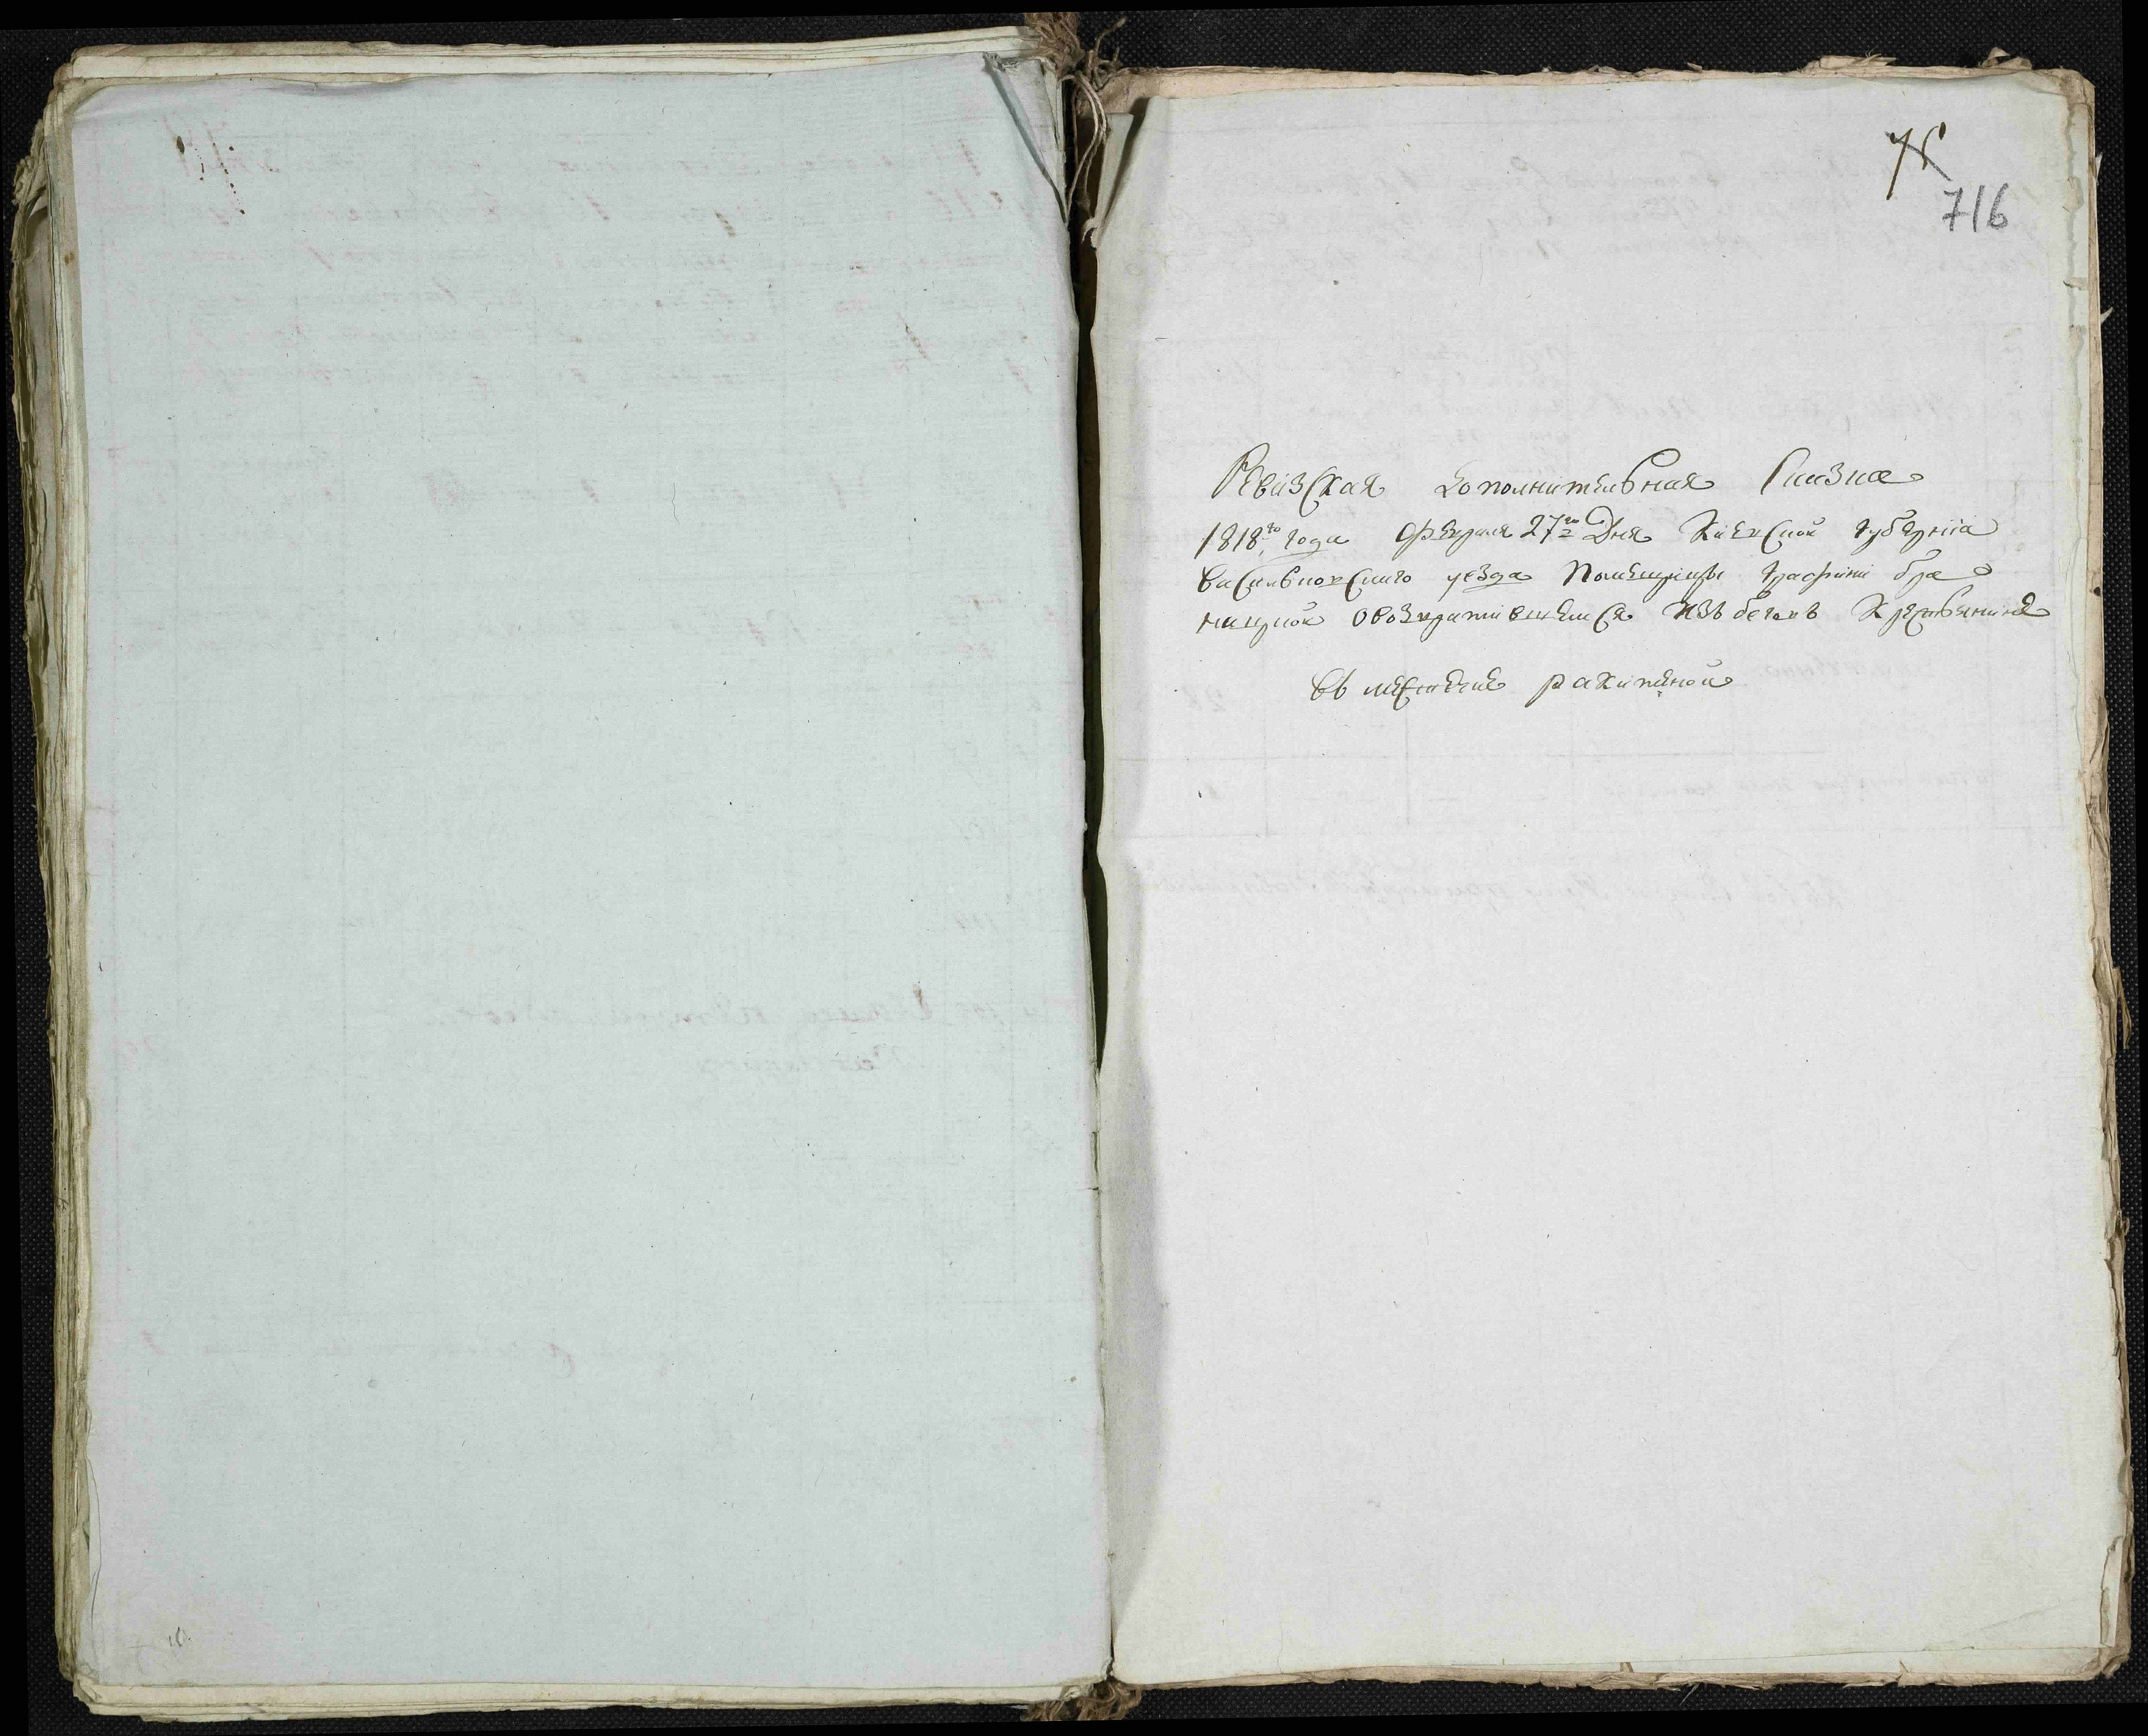 716
Ревизская дополнительная Сказка
1818го года Февраля 27го Дня Киевской губернии
васильковского уезда Помещицы графини бра
ницкой овозвратившемся изъ бегов Крестьянине
въ местечке ракитной